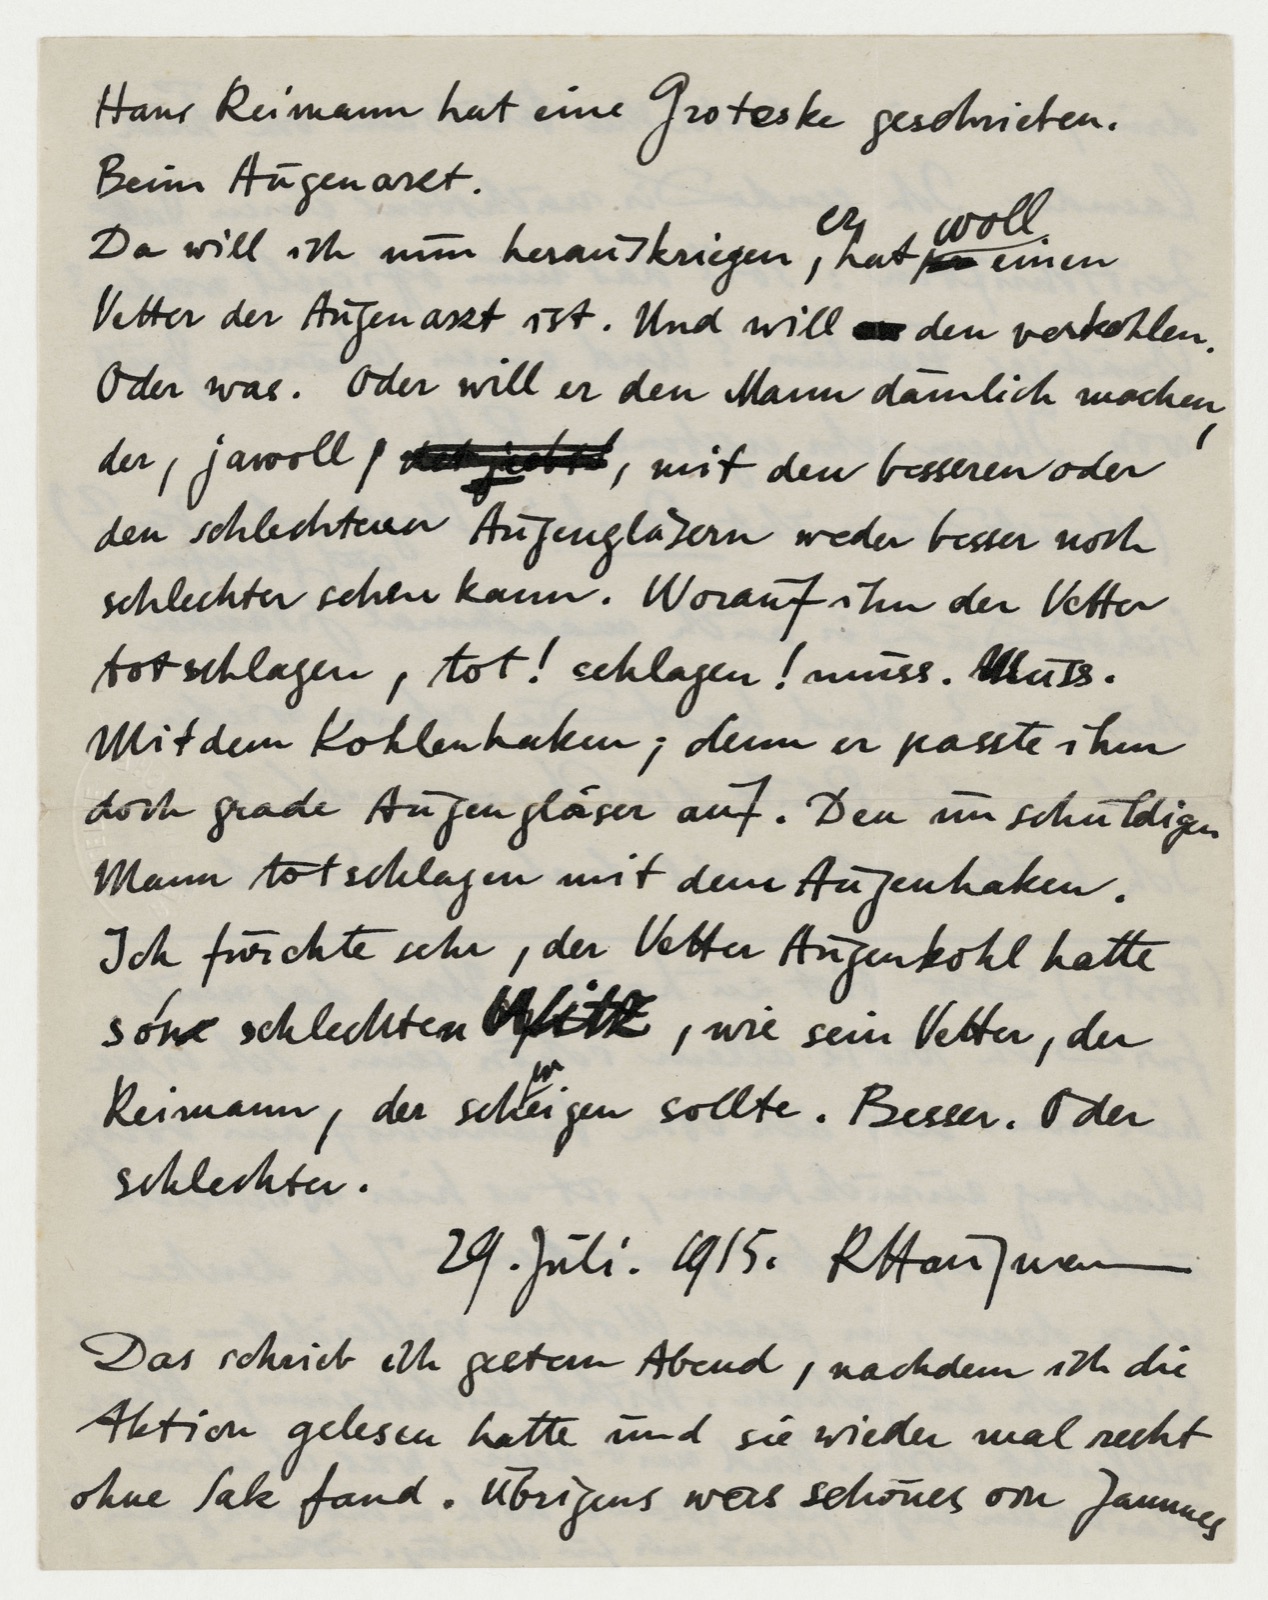 Hans Reimann hat eine Groteske geschrieben.
Beim Augenarzt.
Da will ich nun herauskriegen, er hat woll einen
Vetter der Augenarzt ist. Und will den verkohlen.
Oder was. Oder will er den Mann dämlich machen,
der, jawoll, der jiebts, mit den besseren oder
den schlechteren Augengläsern weder besser noch
schlechter sehen kann. Worauf ihn der Vetter
totschlagen, tot! schlagen! muss. Muss.
Mit dem Kohlenhaken; denn er passte ihm
doch grade Augengläser auf. Den unschuldigen
Mann totschlagen mit dem Augenhaken.
Ich fürchte sehr, der Vetter Augenkohl hatte
sone schlechten Witz, wie sein Vetter, der
Reimann, der schweigen sollte. Besser. Oder
schlechter.
29. Juli. 1915. RHausmann
Das schrieb ich gestern Abend, nachdem ich die
Aktion gelesen hatte und sie wieder mal recht
ohne Sak fand. Übrigens was schönes von Jammes